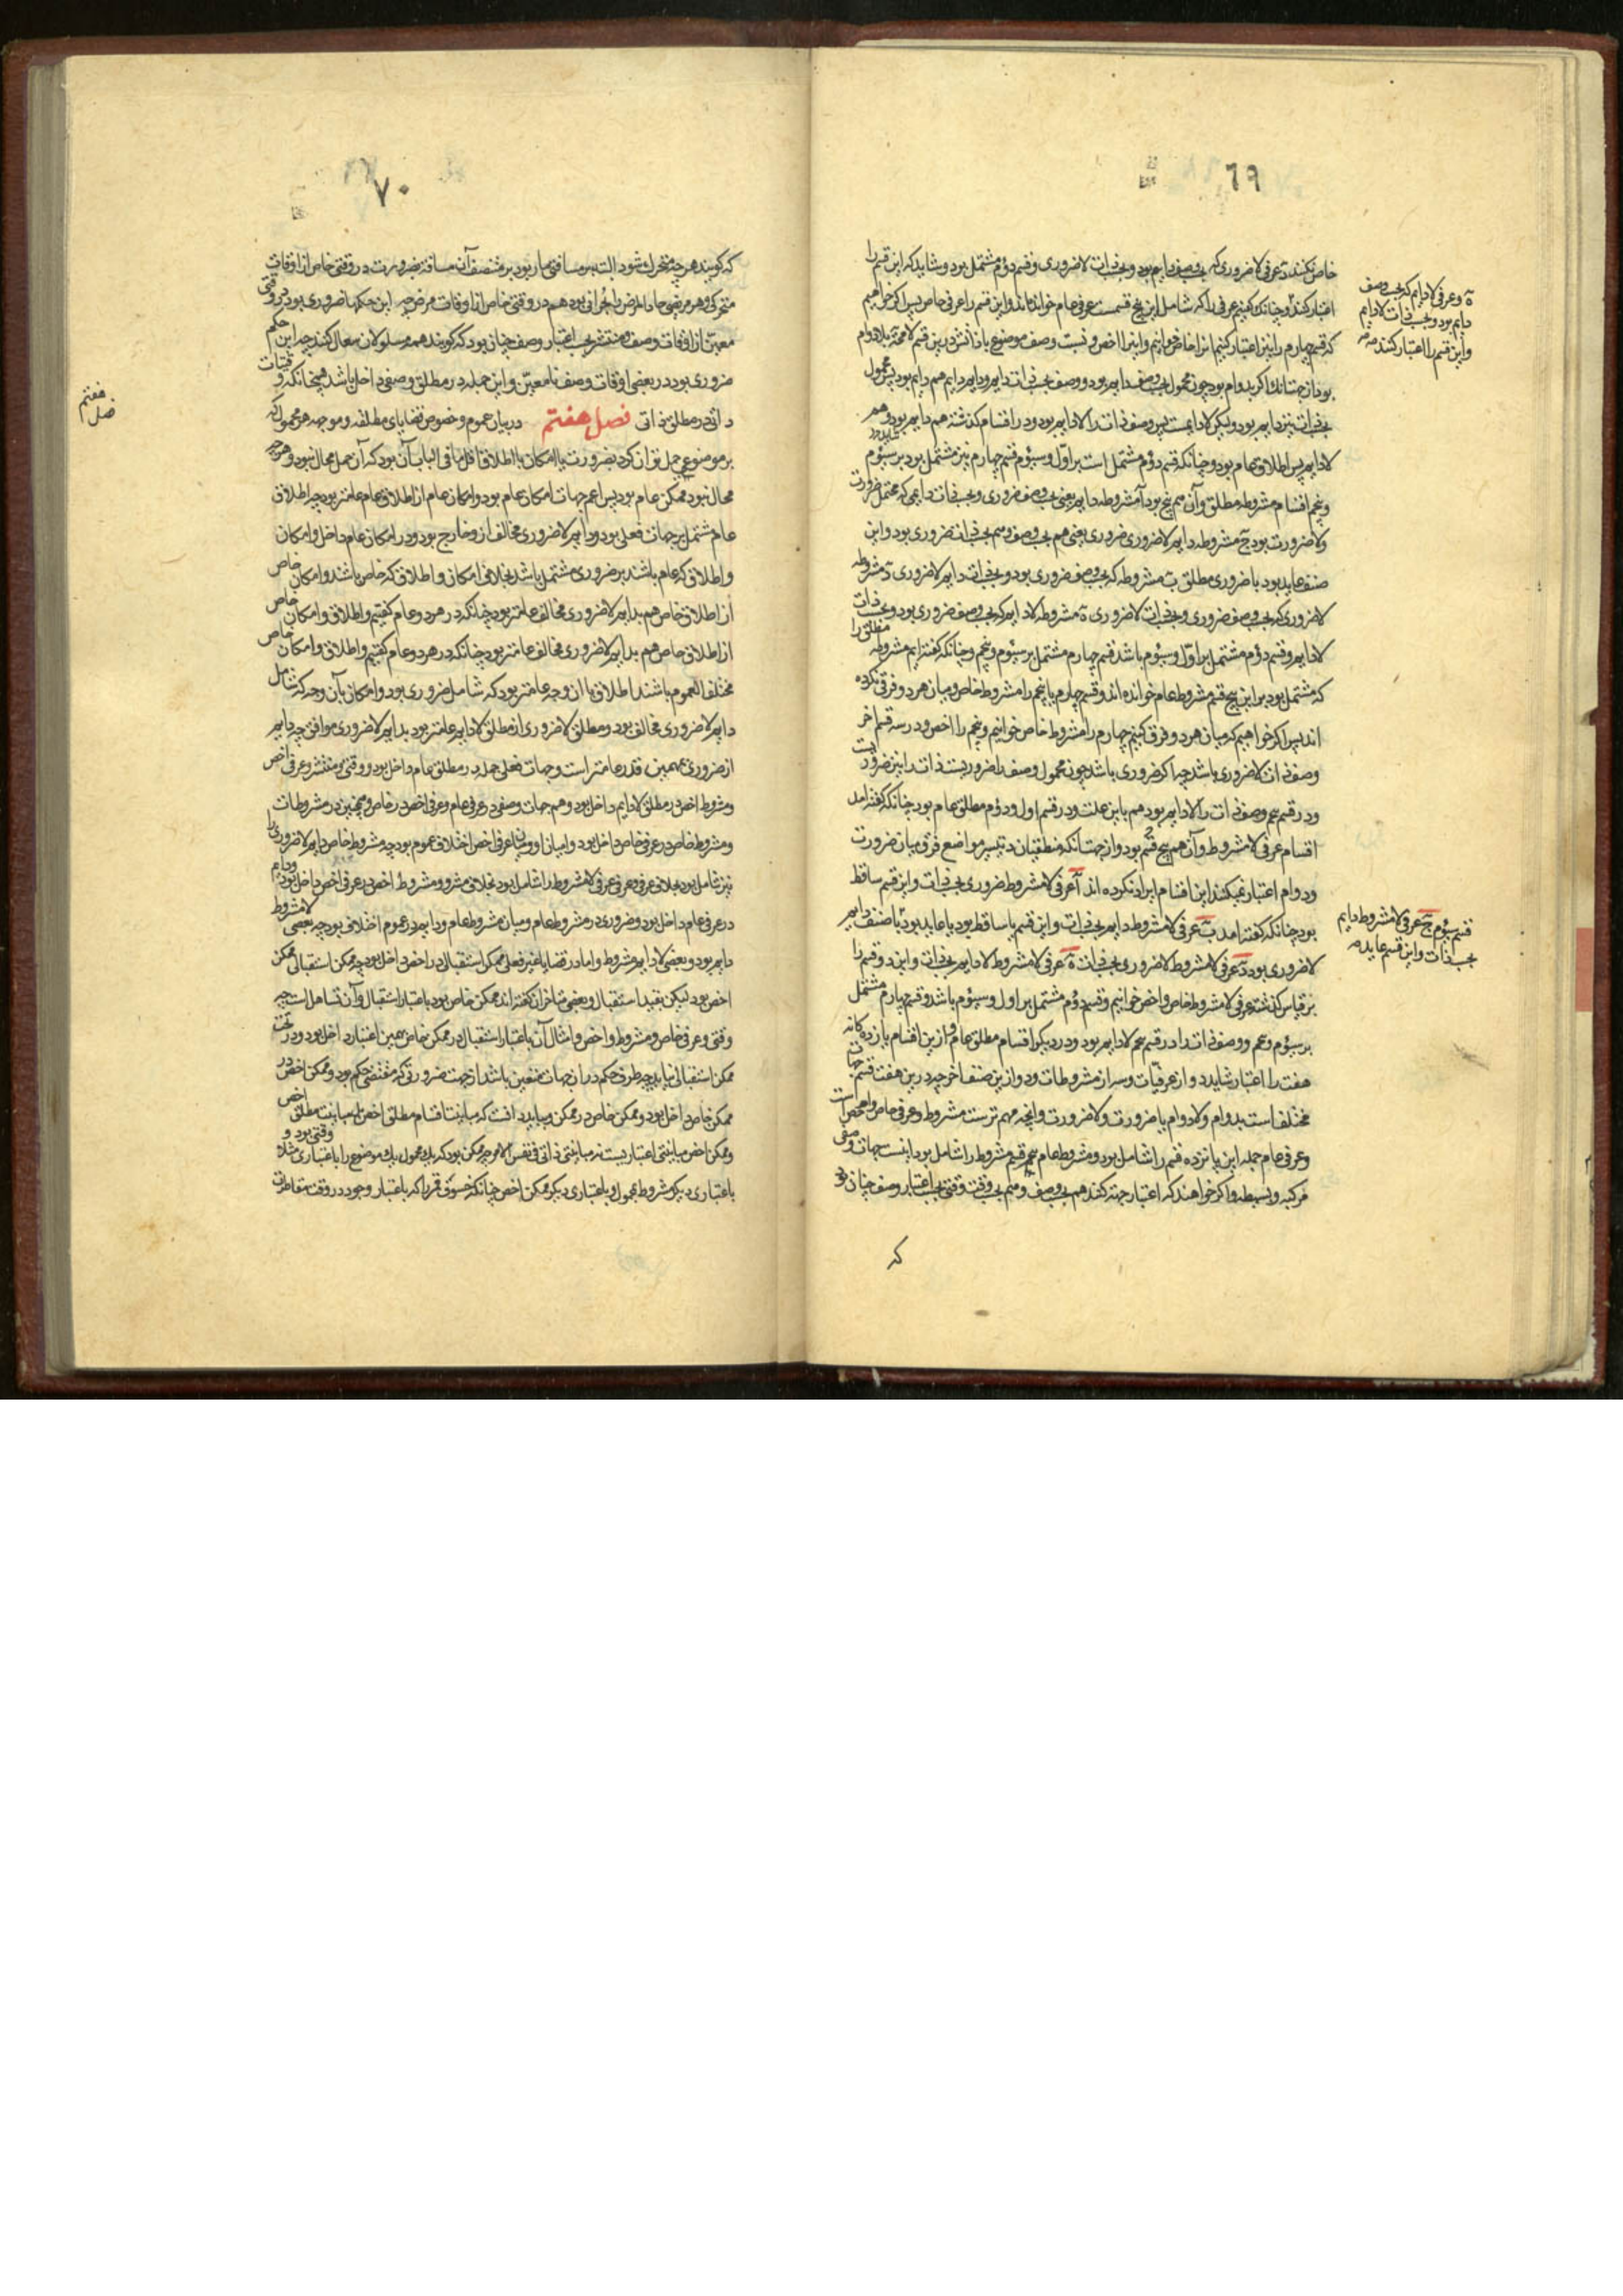 ٦٩
خاص نکنند دَ عرفی لاضروری که بحسب وصف دایم بود و بحسب ذات لاضروری و قسم دوم مشتمل بود و شاید که این قسم را
اعتبار کنند و چنانک گفتیم عرفی را که شامل این پنج قسمست عرفی عام خوانده‌اند و این قسم را عرفی خاص پس اگر خواهیم
که قسم چهارم را نیز اعتبار کنیم آنرا خاص خوانیم و اینرا اخص و نسبت وصف موضوع با ذاتش درین قسم لامحة بلادوام
بود از جهت آنک اگر بدوام بود چون محمول بحسب وصف دایم بود و وصف بحسب ذات دایم و دایم دایم هم دایم بود پس محمول
بحسب ذات نیز دایم بود ولیکن لادایمست پس وصف ذات را لادایم بود و در اقسام گذشته هم دایم بود و هم
لادایم پس اطلاق عام بود و چنانکه قسم دوم مشتمل است بر اول و سیوم قسم چهارم نیز مشتمل بود بر سیوم
و پنجم اقسام مشروطه مطلق و آن هم پنج بود آ مشروطه دایم یعنی بحسب وصف ضروری و بحسب ذات دایمی که محتمل ضرورت
ولاضرورت بود جَ مشروطه دایم لاضروری ضروری یعنی هم بحسب وصف و هم بحسب ذات ضروری بود و این
صنف عاید بود با ضروری مطلق بَ مشروطه که بحسب وصف ضروری بود و بحسب ذات دایم لاضروری دَ مشروطه
لاضروری که بحسب وصف ضروری و بحسب ذات لاضروری ةَ مشروطه لادایم که بحسب وصف ضروری بود و بحسب ذات
لادایم و قسم دوم مشتمل بر اول و سیوم باشد قسم چهارم مشتمل بر سیوم و پنجم و چنانکه گفته‌ایم مشروطه مطلق را
که مشتمل بود بر این پنج قسم مشروط عام خوانده اند و قسم چهارم یا پنجم را مشروط خاص و میان هر دو فرق نکرده
اند پس اگر خواهیم که میان هر دو فرق کنیم چهارم را مشروط خاص خوانیم و پنجم را اخص و در سه قسم آخر
وصف ذات لاضروری باشد چه اگر ضروری باشد چون محمول وصف را ضروریست ذات را نیز ضروریست
و در قسم پنجم وصف ذات را لادایم بود هم باین علت و در قسم اول و دوم مطلق عام بود چنانکه گفته آمد
اقسام عرفی لامشروط و آن هم پنج قسم بود و از جهت آنکه منطقیان در بیشتر مواضع فرق میان ضرورت
و دوام اعتبار نمیکنند این اقسام ایراد نکرده اند آ عرفی لامشروط ضروری بحسب ذات و این قسم ساقط
بود چنانکه گفته آمد بَ عرفی لامشروط دایم بحسب ذات و این قسم یا ساقط بود یا عاید بود با صنف دایم
لاضروری بود دَ عرفی لامشروط لاضروری بحسب ذات ةَ عرفی لامشروط لادایم بحسب ذات و این دو قسم را
بر قیاس گذشته عرفی لامشروط خاص و اخص خوانیم و قسم دوم مشتمل بر اول و سیوم باشد و قسم چهارم مشتمل
بر سیوم و پنجم و وصف ذات را در قسم پنجم لادایم بود و در دیگر اقسام مطلق عام و از این اقسام پانزده گانه
هفت را اعتبار شاید دو از عرفیات و سه از مشروطات و دو از این صنف آخر چه درین هفت قسم جهات
مختلف است بدوام ولادوام یا ضرورت ولاضرورت و آنچه مهم ترست مشروط و عرفی خاص و اخص است
و عرفی عام جمله این پانزده قسم را شامل بود و مشروط عام پنج قسم مشروط را شامل بود اینست جهات وصفی
مرکبه و بسیطه و اگر خواهند که اعتبار جهت کنند هم بحسب وصف و هم بحسب وقت وقتی بحسب اعتبار وصف چنان بود
که
ةَ و عرفی لادایم که بحسب وصف
دایم بود و بحسب ذات لادایم
و این قسم را اعتبار کنند
قسم سیوم جَ عرفی لامشروط دایم
بحسب ذات و این قسم عاید
٧٠
که گویند هر چه متحرک شود البته بر مسافتی مار بود بر منتصف آن مسافة بضرورت در وقتی خاص از اوقات
متحرکی و هر مریض حاد المرض را بحرانی بود هم در وقتی خاص از اوقات مرض چه این حکمها ضروری بود در وقتی
معین از اوقات وصف و منتشر بحسب اعتبار وصف چنان بود که گویند همه مسلولان سعال کنند چه این حکم
ضروری بود در بعضی اوقات وصف نامعین و این جمله در مطلق وصفی داخل باشد همچنانکه وقتیات
ذاتی در مطلق ذاتی فصل هفتم در بیان عموم و خصوص قضایای مطلقه و موجهه هر محمول که
بر موضوعی حمل توان کرد بضرورت یا امکان یا اطلاق اقل ما فی الباب آن بود که آن حمل محال نبود و هر چه
محال نبود ممکن عام بود پس اعم جهات امکان عام بود و امکان عام از اطلاق عام عامتر بود چه اطلاق
عام مشتمل بر جهات فعلی بود و دایم لاضروری مخالف ازو خارج بود و در امکان عام داخل و امکان
و اطلاق که عام باشند بر ضروری مشتمل باشد بخلاف امکان و اطلاق که خاص باشند و امکان خاص
از اطلاق خاص هم بدایم لاضروری مخالف عامتر بود چنانکه در هر دو عام گفتیم و اطلاق و امکان خاص
از اطلاق خاص هم بدایم لاضروری مخالف عامتر بود چنانکه در هر دو عام گفتیم و اطلاق و امکان خاص
مختلف العموم باشند اطلاق با آن وجه عامتر بود که شامل ضروری بود و امکان بآن وجه که شامل
دایم لاضروری مخالف بود و مطلق لاضروری از مطلق لادایم عامتر بود بدایم لاضروری موافق چه دایم
از ضروری بهمین قدر عامتر است و جهات فعلی جمله در مطلق عام داخل بود و وقتی و منتشر و عرفی اخص
و مشروط اخص در مطلق لادایم داخل بود و هم جهات وصفی در عرفی عام و عرفی اخص در خاص و همچنین در مشروطات
و مشروط خاص در عرفی خاص داخل بود و میان او و میان عرفی اخص اختلاف عموم بود چه مشروط خاص دایم لاضروری را
نیز شامل بود بخلاف عرفی و عرفی لامشروط را شامل بود بخلاف مشروط و مشروط اخص در عرفی اخص داخل بود و دایم
در عرفی عام داخل بود و ضروری در مشروط عام و میان مشروط عام و دایم در عموم اختلافی بود چه بعضی لامشروط
دایم بود و بعضی لادایم مشروط و اما در قضایا غیر فعلی ممکن استقبالی در اخص داخل بود چه ممکن استقبالی ممکن
اخص بود لیکن بقید استقبال و بعضی متاخران گفته اند ممکن خاص بود باعتبار استقبال و آن تساهل است چه
وقتی و عرفی خاص و مشروط و اخص و امثال آن باعتبار استقبال در ممکن خاص بهمین اعتبار داخل بود و در تحت
ممکن استقبالی نیاید چه طرف حکم در آن جهات متعین باشد از جهت ضرورتی که مقتضی حکم بود و ممکن اخص در
ممکن خاص داخل بود و ممکن خاص در ممکن و بباید دانست که مباینت اقسام مطلق اخص با مباینت مطلق اخص
و ممکن اخص مباینتی اعتباریست نه مباینتی ذاتی فی نفس الامر چه ممکن بود که یک محمول یک موضوع را باعتباری مثلا وقتی بود و
باعتباری دیگر مشروط محمول و باعتباری دیگر ممکن اخص چنانکه خسوف قمر را که باعتبار وجود در وقت مقاطرت
فصل هفتم